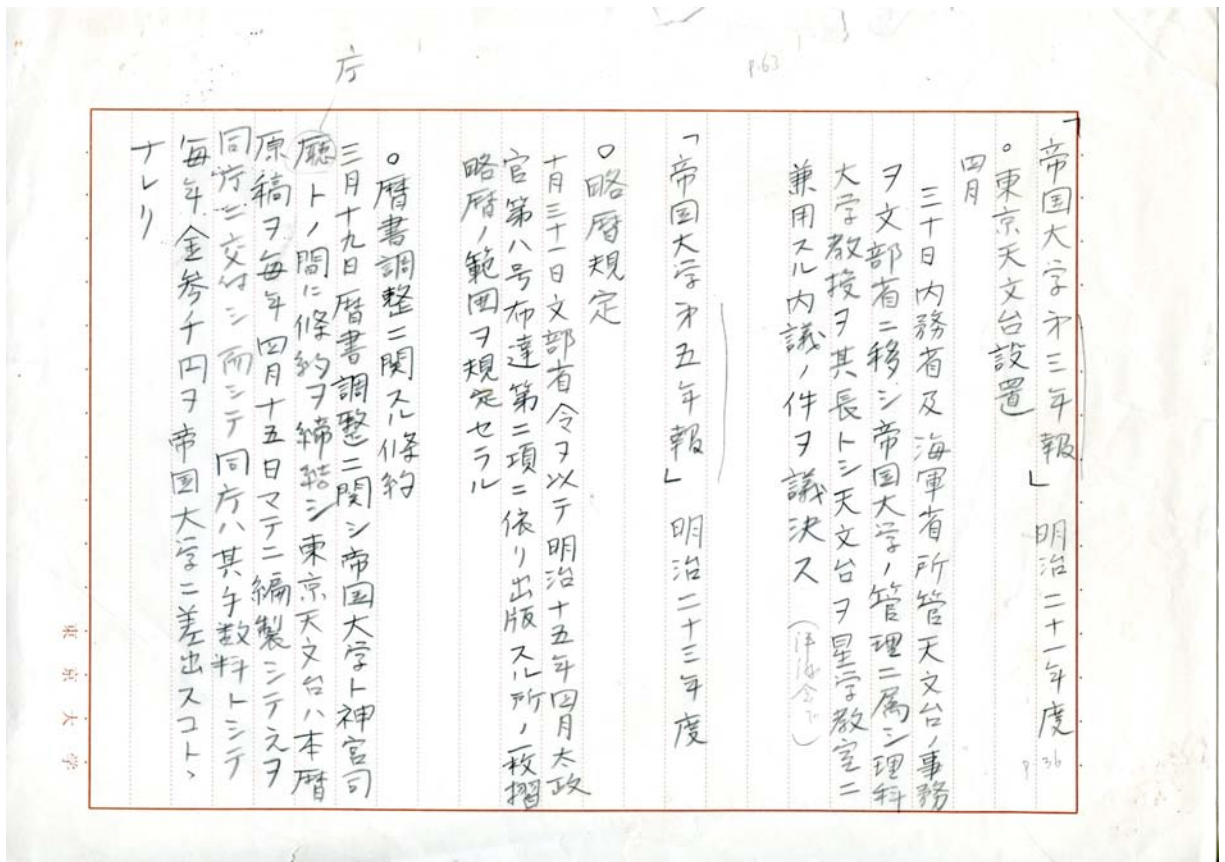 「帝国大学才三年報」 明治二十一年度
p.36
。東京天文台設置
四月
三十日内務省及海軍省所管天文台ノ事務
ヲ文部省ニ移シ帝国大学ノ管理ニ属シ理科
大学教授ヲ其長トシ天文台ヲ星学教室ニ
兼用スル内議ノ件ヲ議決ス
p.63
「帝国大学才五年報」 明治二十三年度
○略暦規定
十月三十一日文部省令ヲ以テ明治十五年四月太政
官第八号布達第二項ニ依リ出版スル所ノ一枚摺
略暦ノ範囲ヲ規定セラル
○暦書調整ニ関スル條約
三月十九日暦書調整ニ関シ帝国大学ト神宮司
庁
廳トノ間に條約ヲ締結シ東京天文台ハ本暦
原稿ヲ毎年四月十五日マテニ編製シテ之ヲ
同庁ニ交付シ而シテ同庁ハ其手数料トシテ
毎年金参千円ヲ帝国大学ニ差出スコトヽ
ナレリ
東京大学